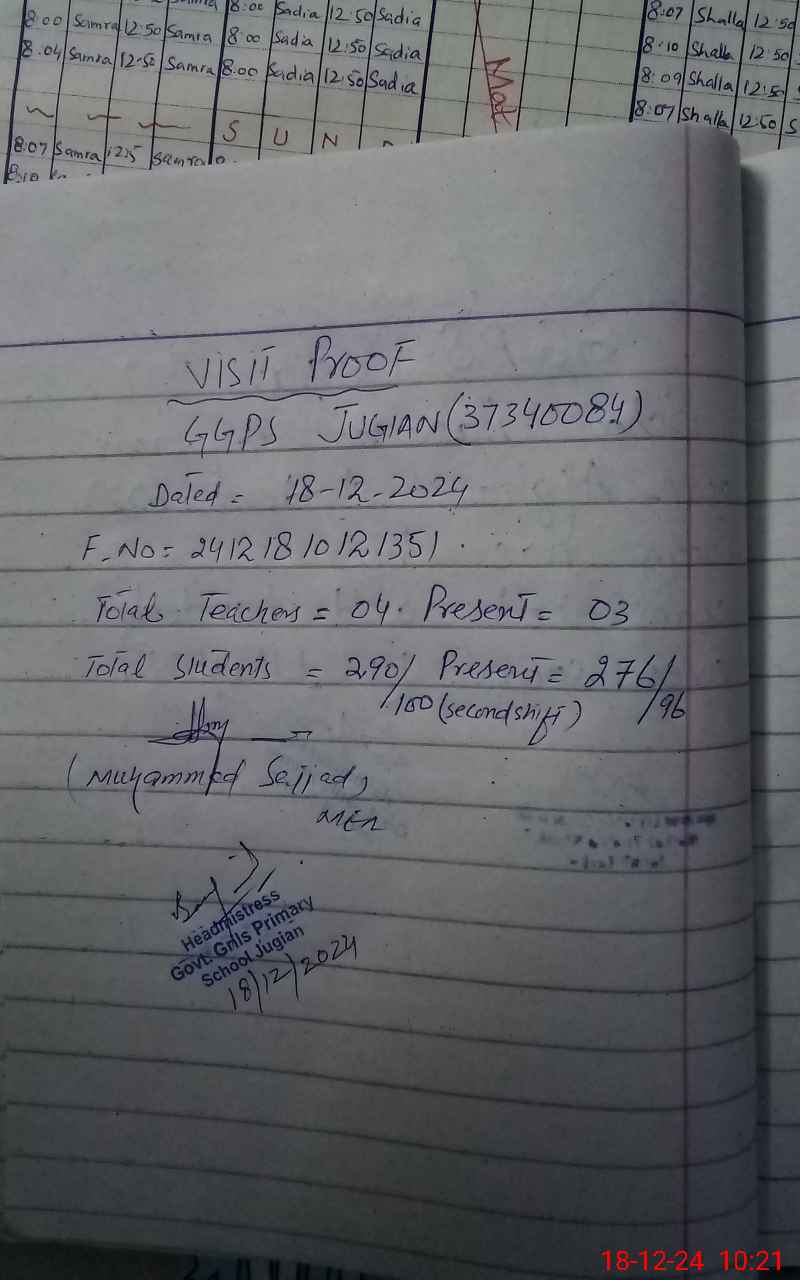 8:00 Samra 12:50 Samra 8:00 Sadia 12:50 Sadia
8:00 Sadia 12:50 Sadia
8:04 Samra 12:50 Samra 8:00 Sadia 12:50 Sadia
S U N
8:07 Samra 12:15 Samra
8:10
Mat
8:07 Shalla 12:50
8:10 Shalla 12:50
8:09 Shalla 12:50
8:07 Shalla 12:50 S
VISIT PROOF
GGPS JUGIAN (37340084)
Dated = 18-12-2024
F.No = 24121810121351
Total Teachers = 04. Present = 03
Total Students = 290/ Present = 276/
100 (second shift) /96
(Muhammad Sajjad)
MEA
Headmistress
Govt. Girls Primary
School Jugian
18/12/2024
18-12-24 10:21